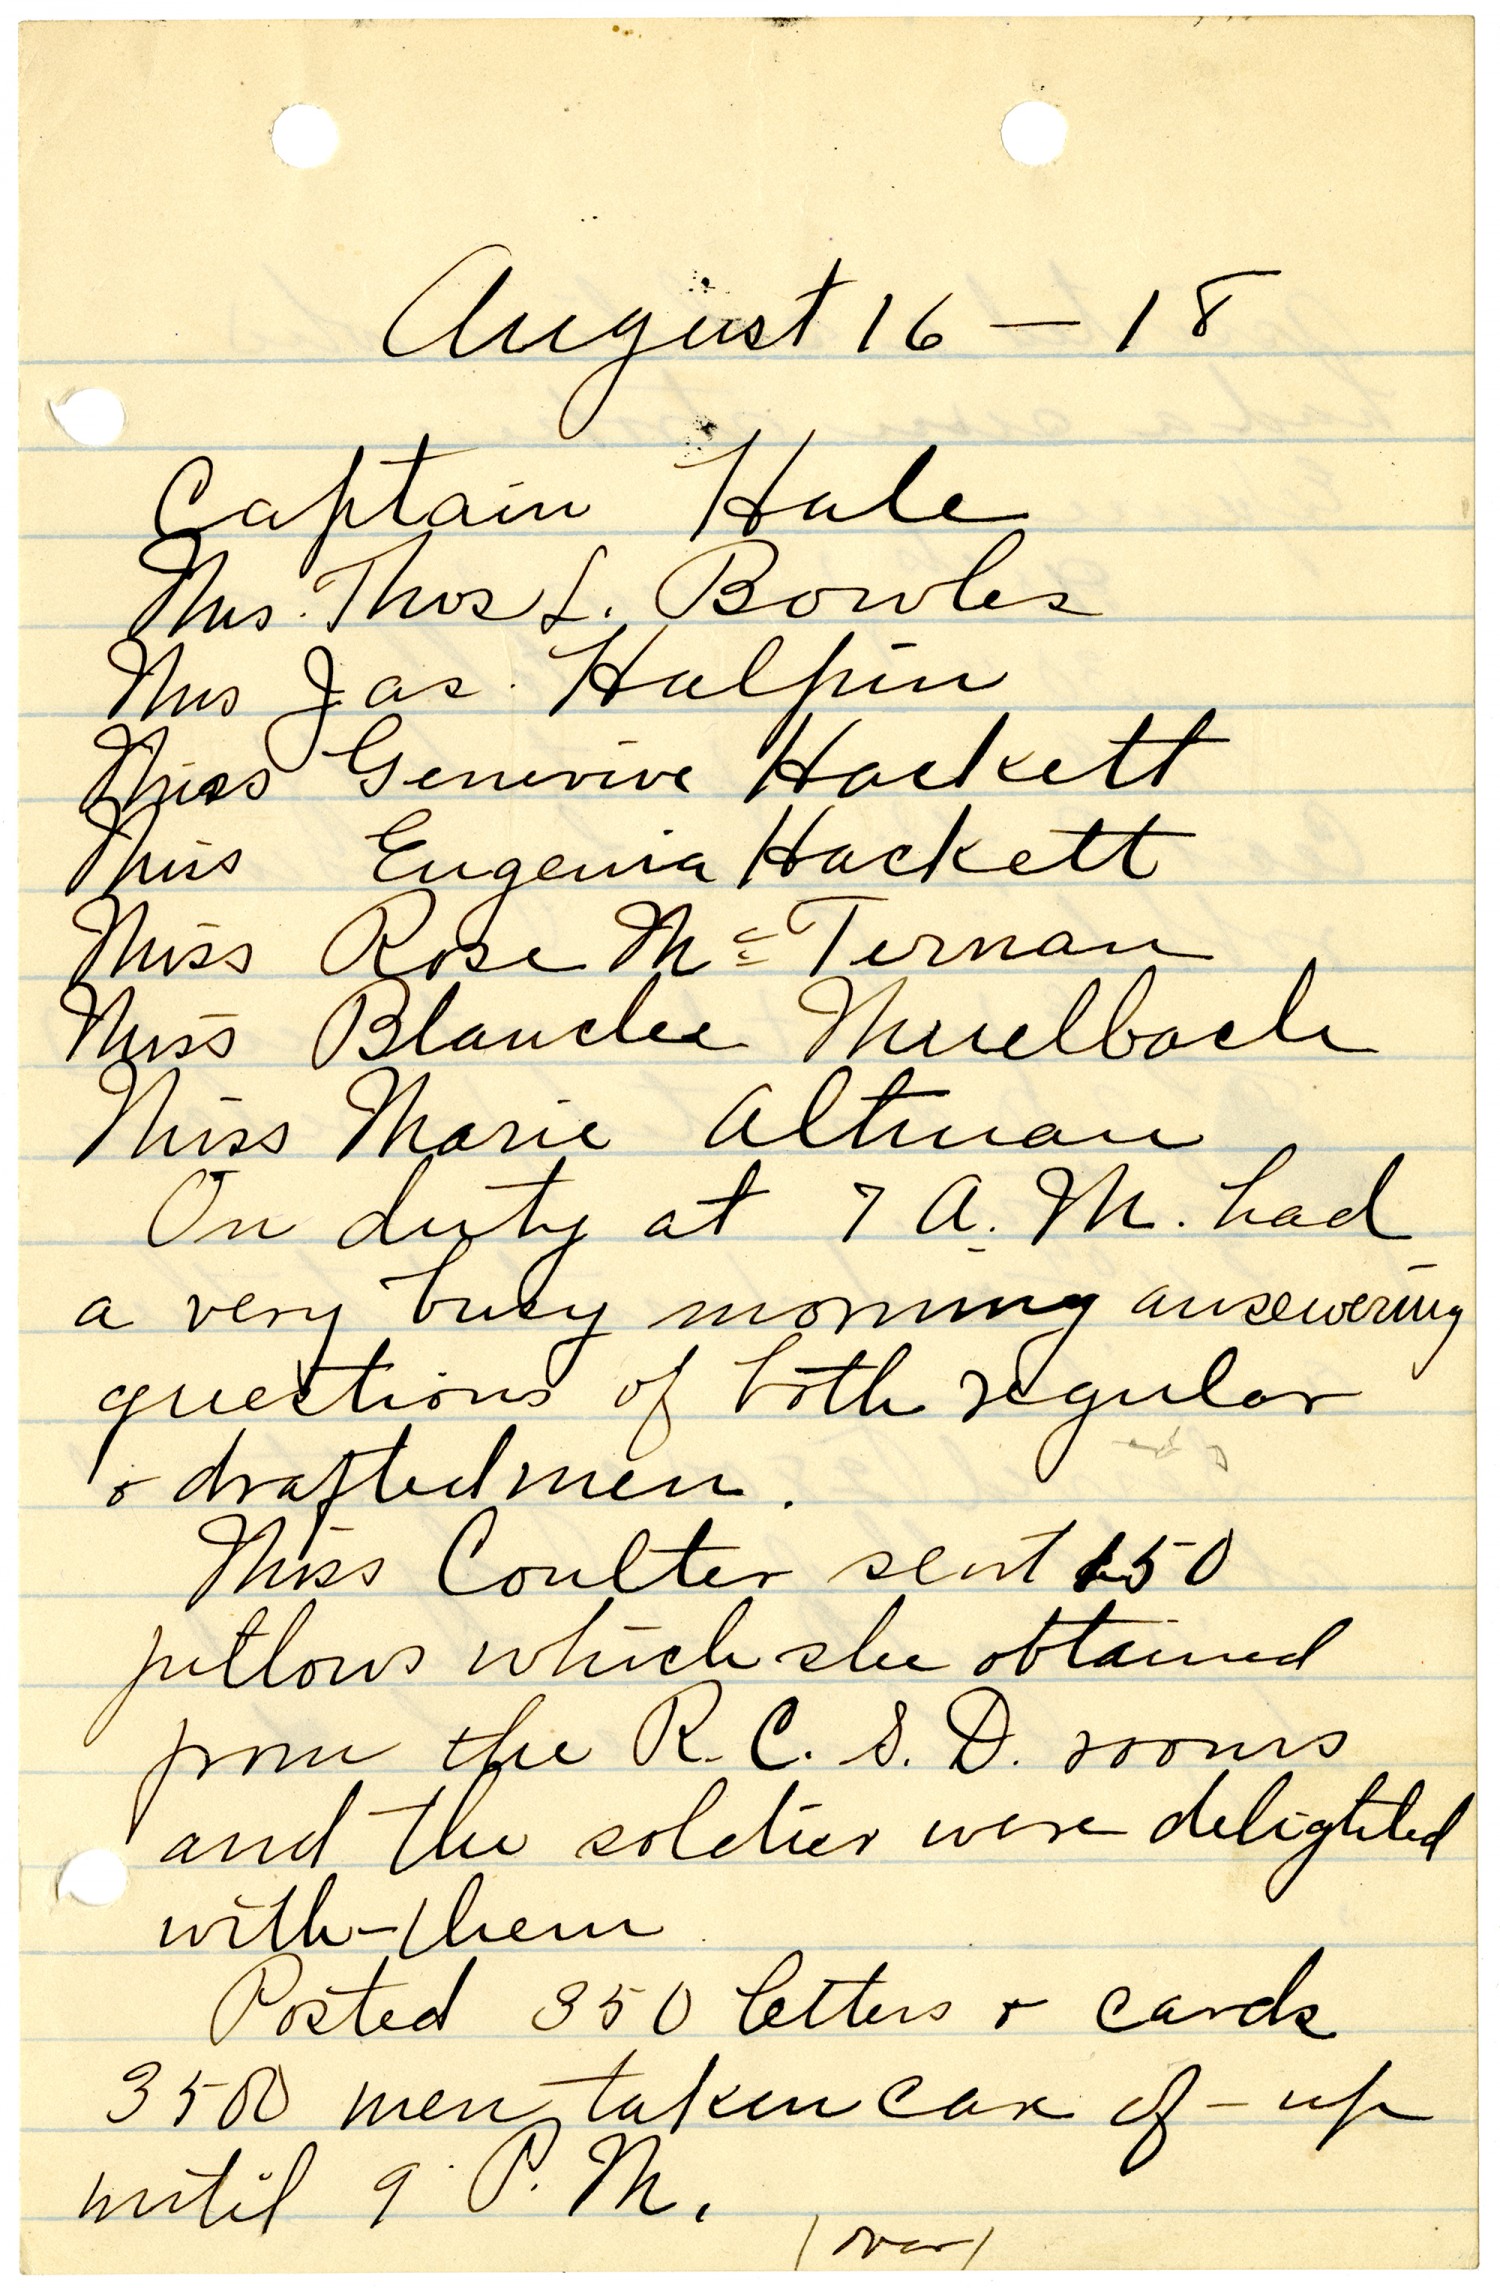 August 16 — 18
Captain Hale
Mrs. Thos L. Bowles
Mrs Jas. Halpin
Miss Genevive Hackett
Miss Eugenia Hackett
Miss Rose Mc Ternan
Miss Blanche Muelbach
Miss Marie Altman
On duty at 7 A. M. had
a very busy morning ansewering
questions of both regular
& drafted men.
Miss Coulter sent 50
pillows which she obtained
from the R. C. S. D. rooms
and the soldier were delighted
with - them
Posted 350 letters & cards
3500 men taken care of - up
until 9 P. M.
(over)